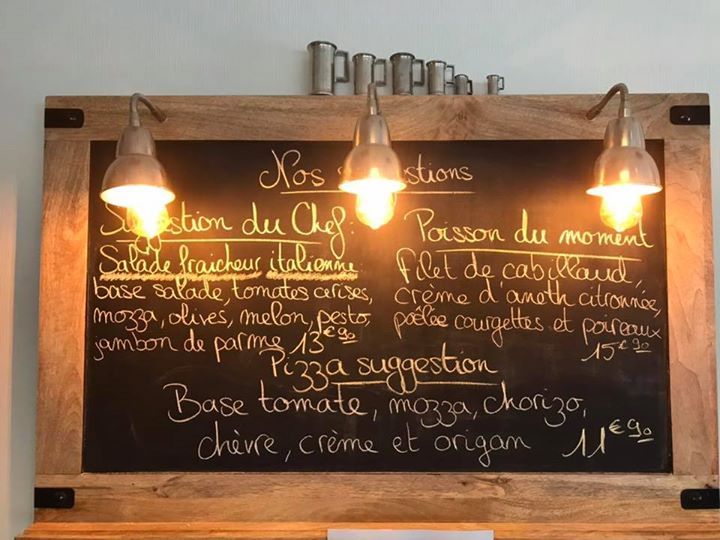 Nos suggestions
Suggestion du Chef:
Salade fraicheur italienne:
base salade, tomates cerises,
mozza, olives, melon, pesto,
jambon de parme 13€90
Poisson du moment
Filet de cabillaud,
crème d'aneth citronnée,
poêlée courgettes et poireaux
15€90
Pizza suggestion
Base tomate, mozza, chorizo,
chèvre, crème et origan 11€90